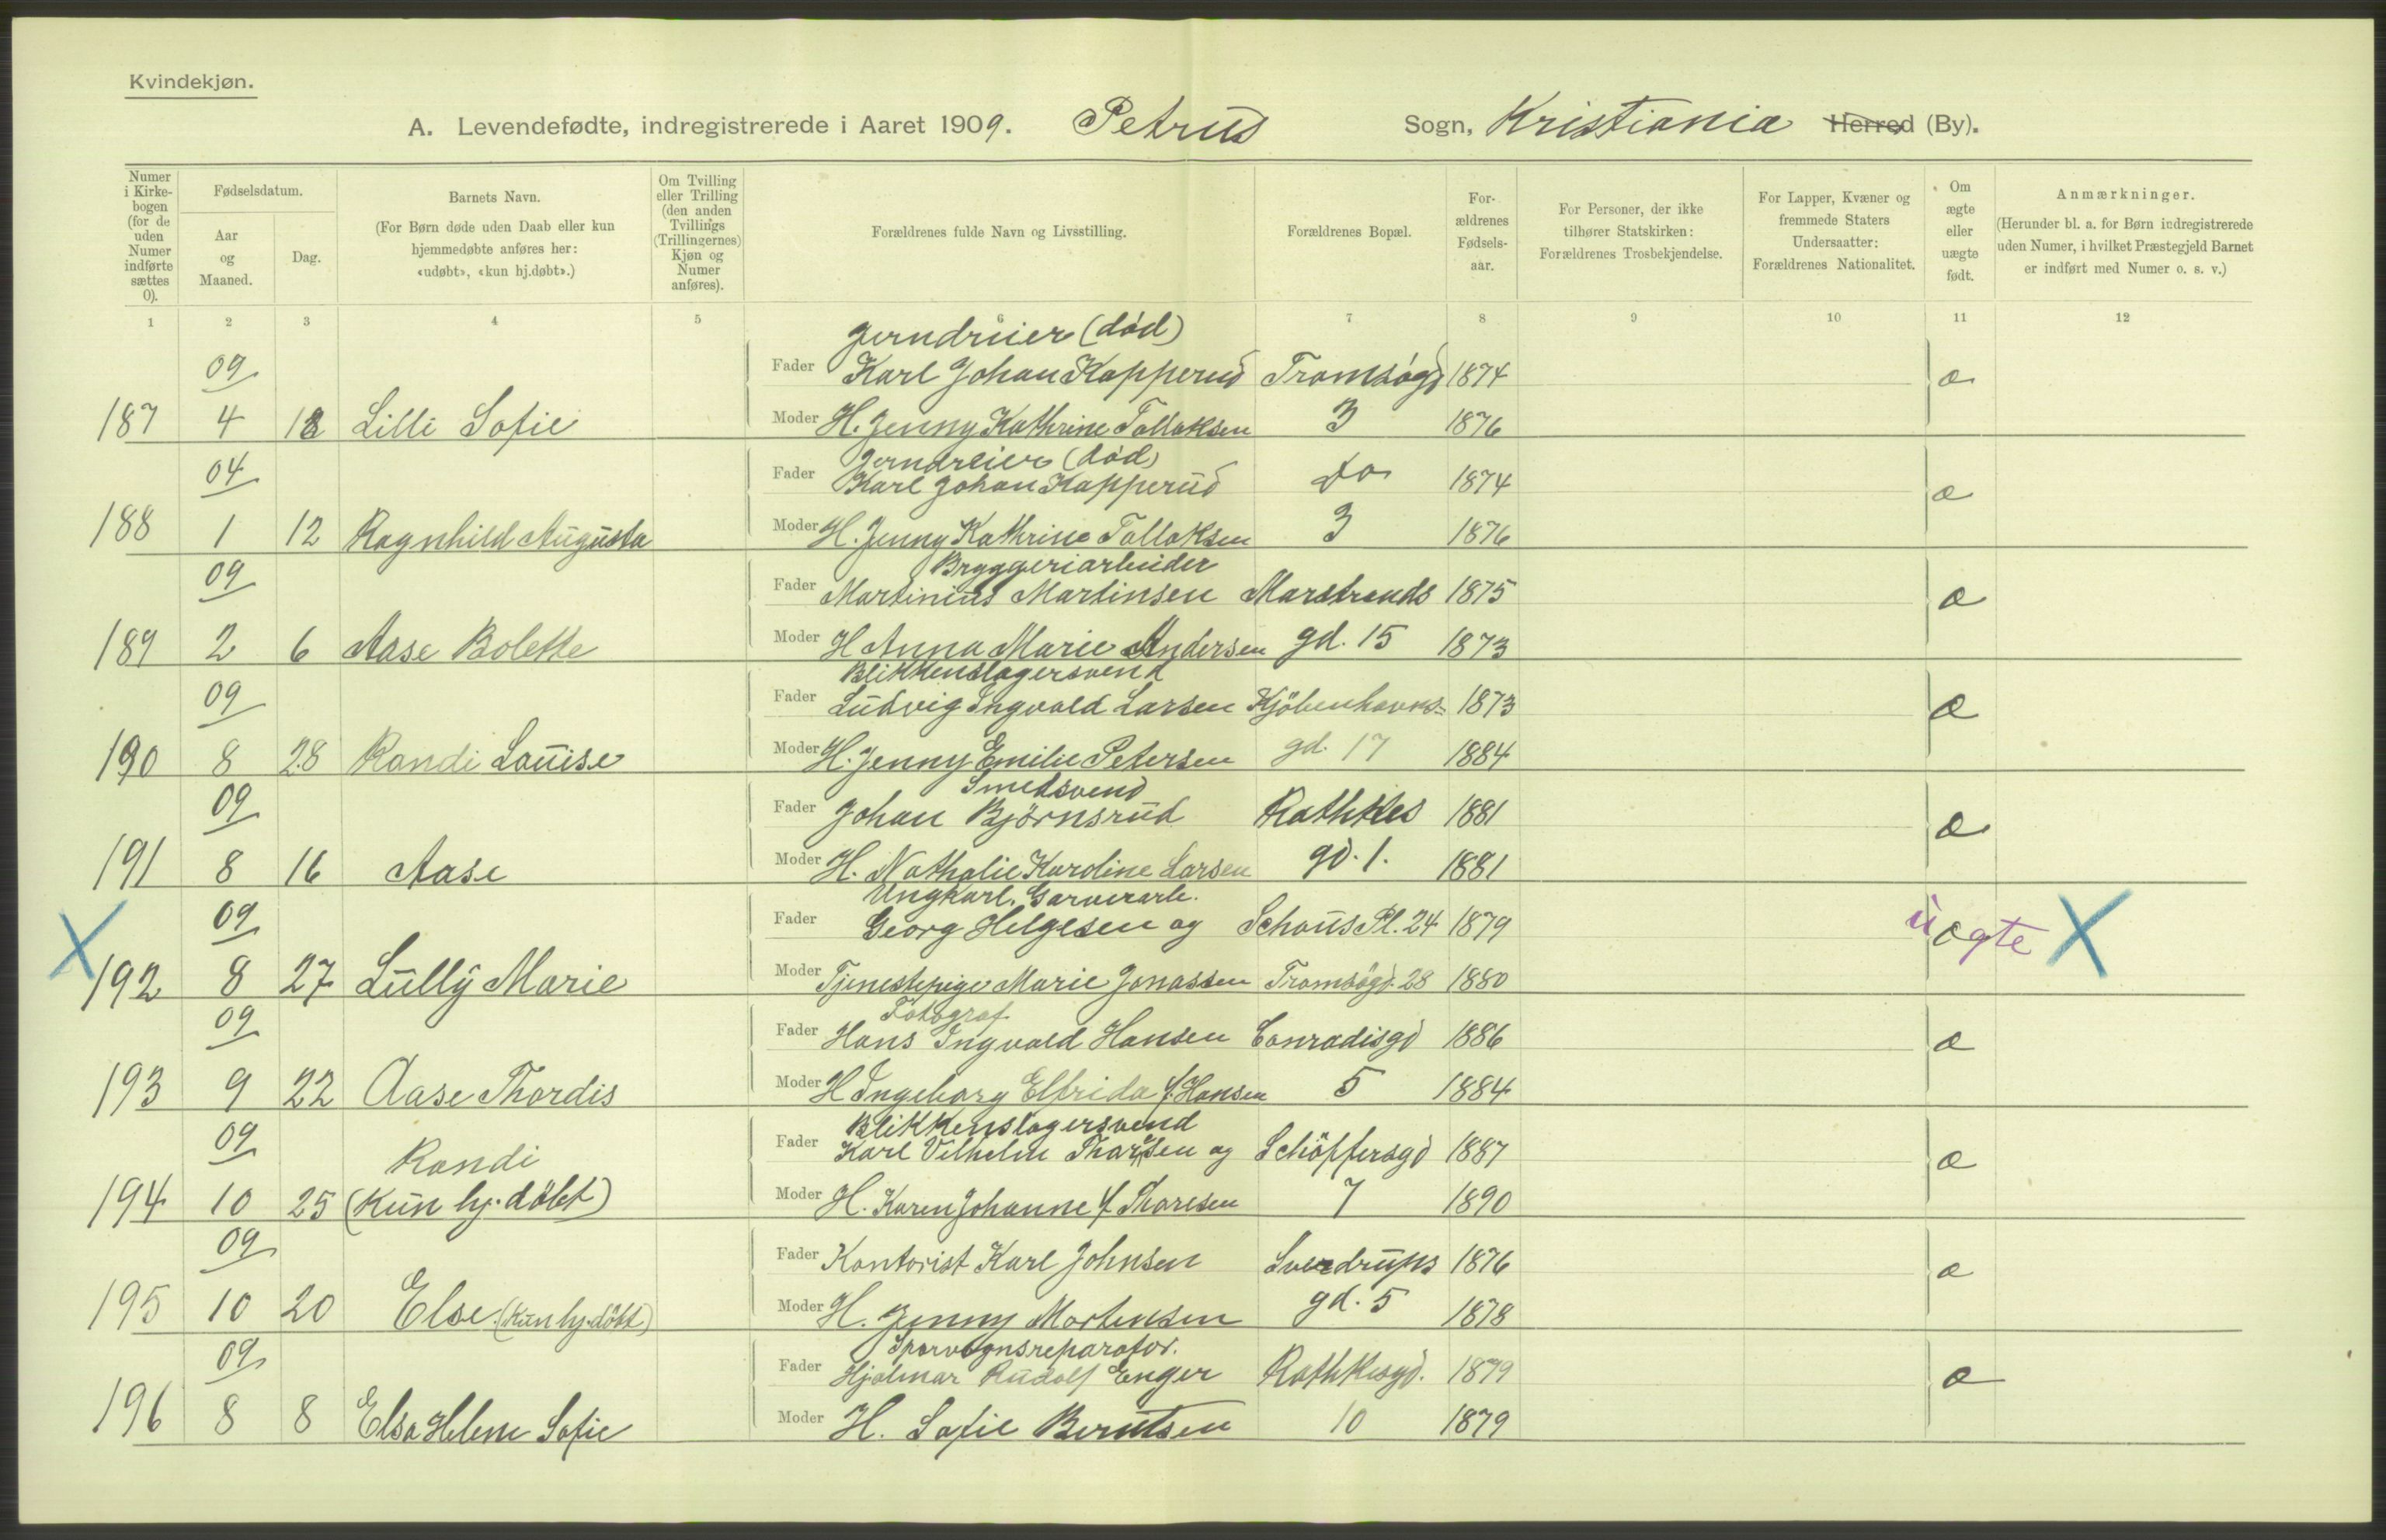 Kvindekjøn.
A. Levendefødte, indregistrerede i Aaret 1909. Petrus Sogn, Kristiania Herred (By).
Numer i Kirkebogen (for de uden Numer indførte sættes 0).
Fødselsdatum.
Aar og Maaned.
Dag.
Barnets Navn.
(For Børn døde uden Daab eller kun hjemmedøbte anføres her: «udøbt», «kun hj.døbt».)
Om Tvilling eller Trilling (den anden Tvillings (Trillingernes) Kjøn og Numer anføres).
Forældrenes fulde Navn og Livsstilling.
Forældrenes Bopæl.
Forældrenes Fødselsaar.
For Personer, der ikke tilhører Statskirken: Forældrenes Trosbekjendelse.
For Lapper, Kvæner og fremmede Staters Undersaatter: Forældrenes Nationalitet.
Om ægte eller uægte født.
Anmærkninger.
(Herunder bl. a. for Børn indregistrerede uden Numer, i hvilket Præstegjeld Barnet er indført med Numer o. s. v.)
1 2 3 4 5 6 7 8 9 10 11 12
Jerndreier (død)
09 Fader Karl Johan Kapperud Tromsøgd 1874 æ
187 4 18 Lilli Sofie Moder H. Jenny Kathrine Tollaksen 3 1876
Jerndreier (død)
04 Fader Karl Johan Kapperud do 1874 æ
188 1 12 Ragnhild Augusta Moder H. Jenny Kathrine Tollaksen 3 1876
Bryggeriarbeider
09 Fader Martinius Martinsen Marstrands 1875 æ
189 2 6 Aase Bolette Moder H Anna Marie Andersen gd. 15 1873
Blikkenslagersvend
09 Fader Ludvig Ingvald Larsen Kjöbenhavns- 1873 æ
190 8 28 Randi Louise Moder H. Jenny Emilie Petersen gd. 17 1884
Smedsvend
09 Fader Johan Bjørnsrud Rathkes 1881 æ
191 8 16 Aase Moder H. Nathalie Karoline Larsen gd. 1. 1881
Ungkarl, Garverarb.
09 Fader Georg Helgesen og Schous Pl. 24 1879 uægte X
X 192 8 27 Lully Marie Moder Tjenestepige Marie Jonassen Tromsøgd. 28 1880
Fotograf
09 Fader Hans Ingvald Hansen Conradisgd 1886 æ
193 9 22 Aase Thordis Moder H Ingeborg Elfrida f. Hansen 5 1884
Blikkenslagersvend
09 Randi Fader Karl Vilhelm Thoresen og Schöffersgd 1887 æ
194 10 25 (Kun hj. döbt) Moder H. Karen Johanne f. Thoresen 7 1890
09 Fader Kontorist Karl Johnsen Sverdrups 1876 æ
195 10 20 Else (Kun hj. döbt) Moder H. Jenny Mortensen gd. 5 1878
Sporvognsreparatør.
09 Fader Hjalmar Rudolf Enger Rathkesgd. 1879 æ
196 8 8 Elsa Helene Sofie Moder H. Sofie Berntsen 10 1879